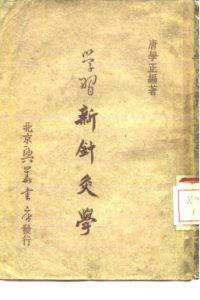 唐學正編著
学習新針灸學
北京興華書局發行